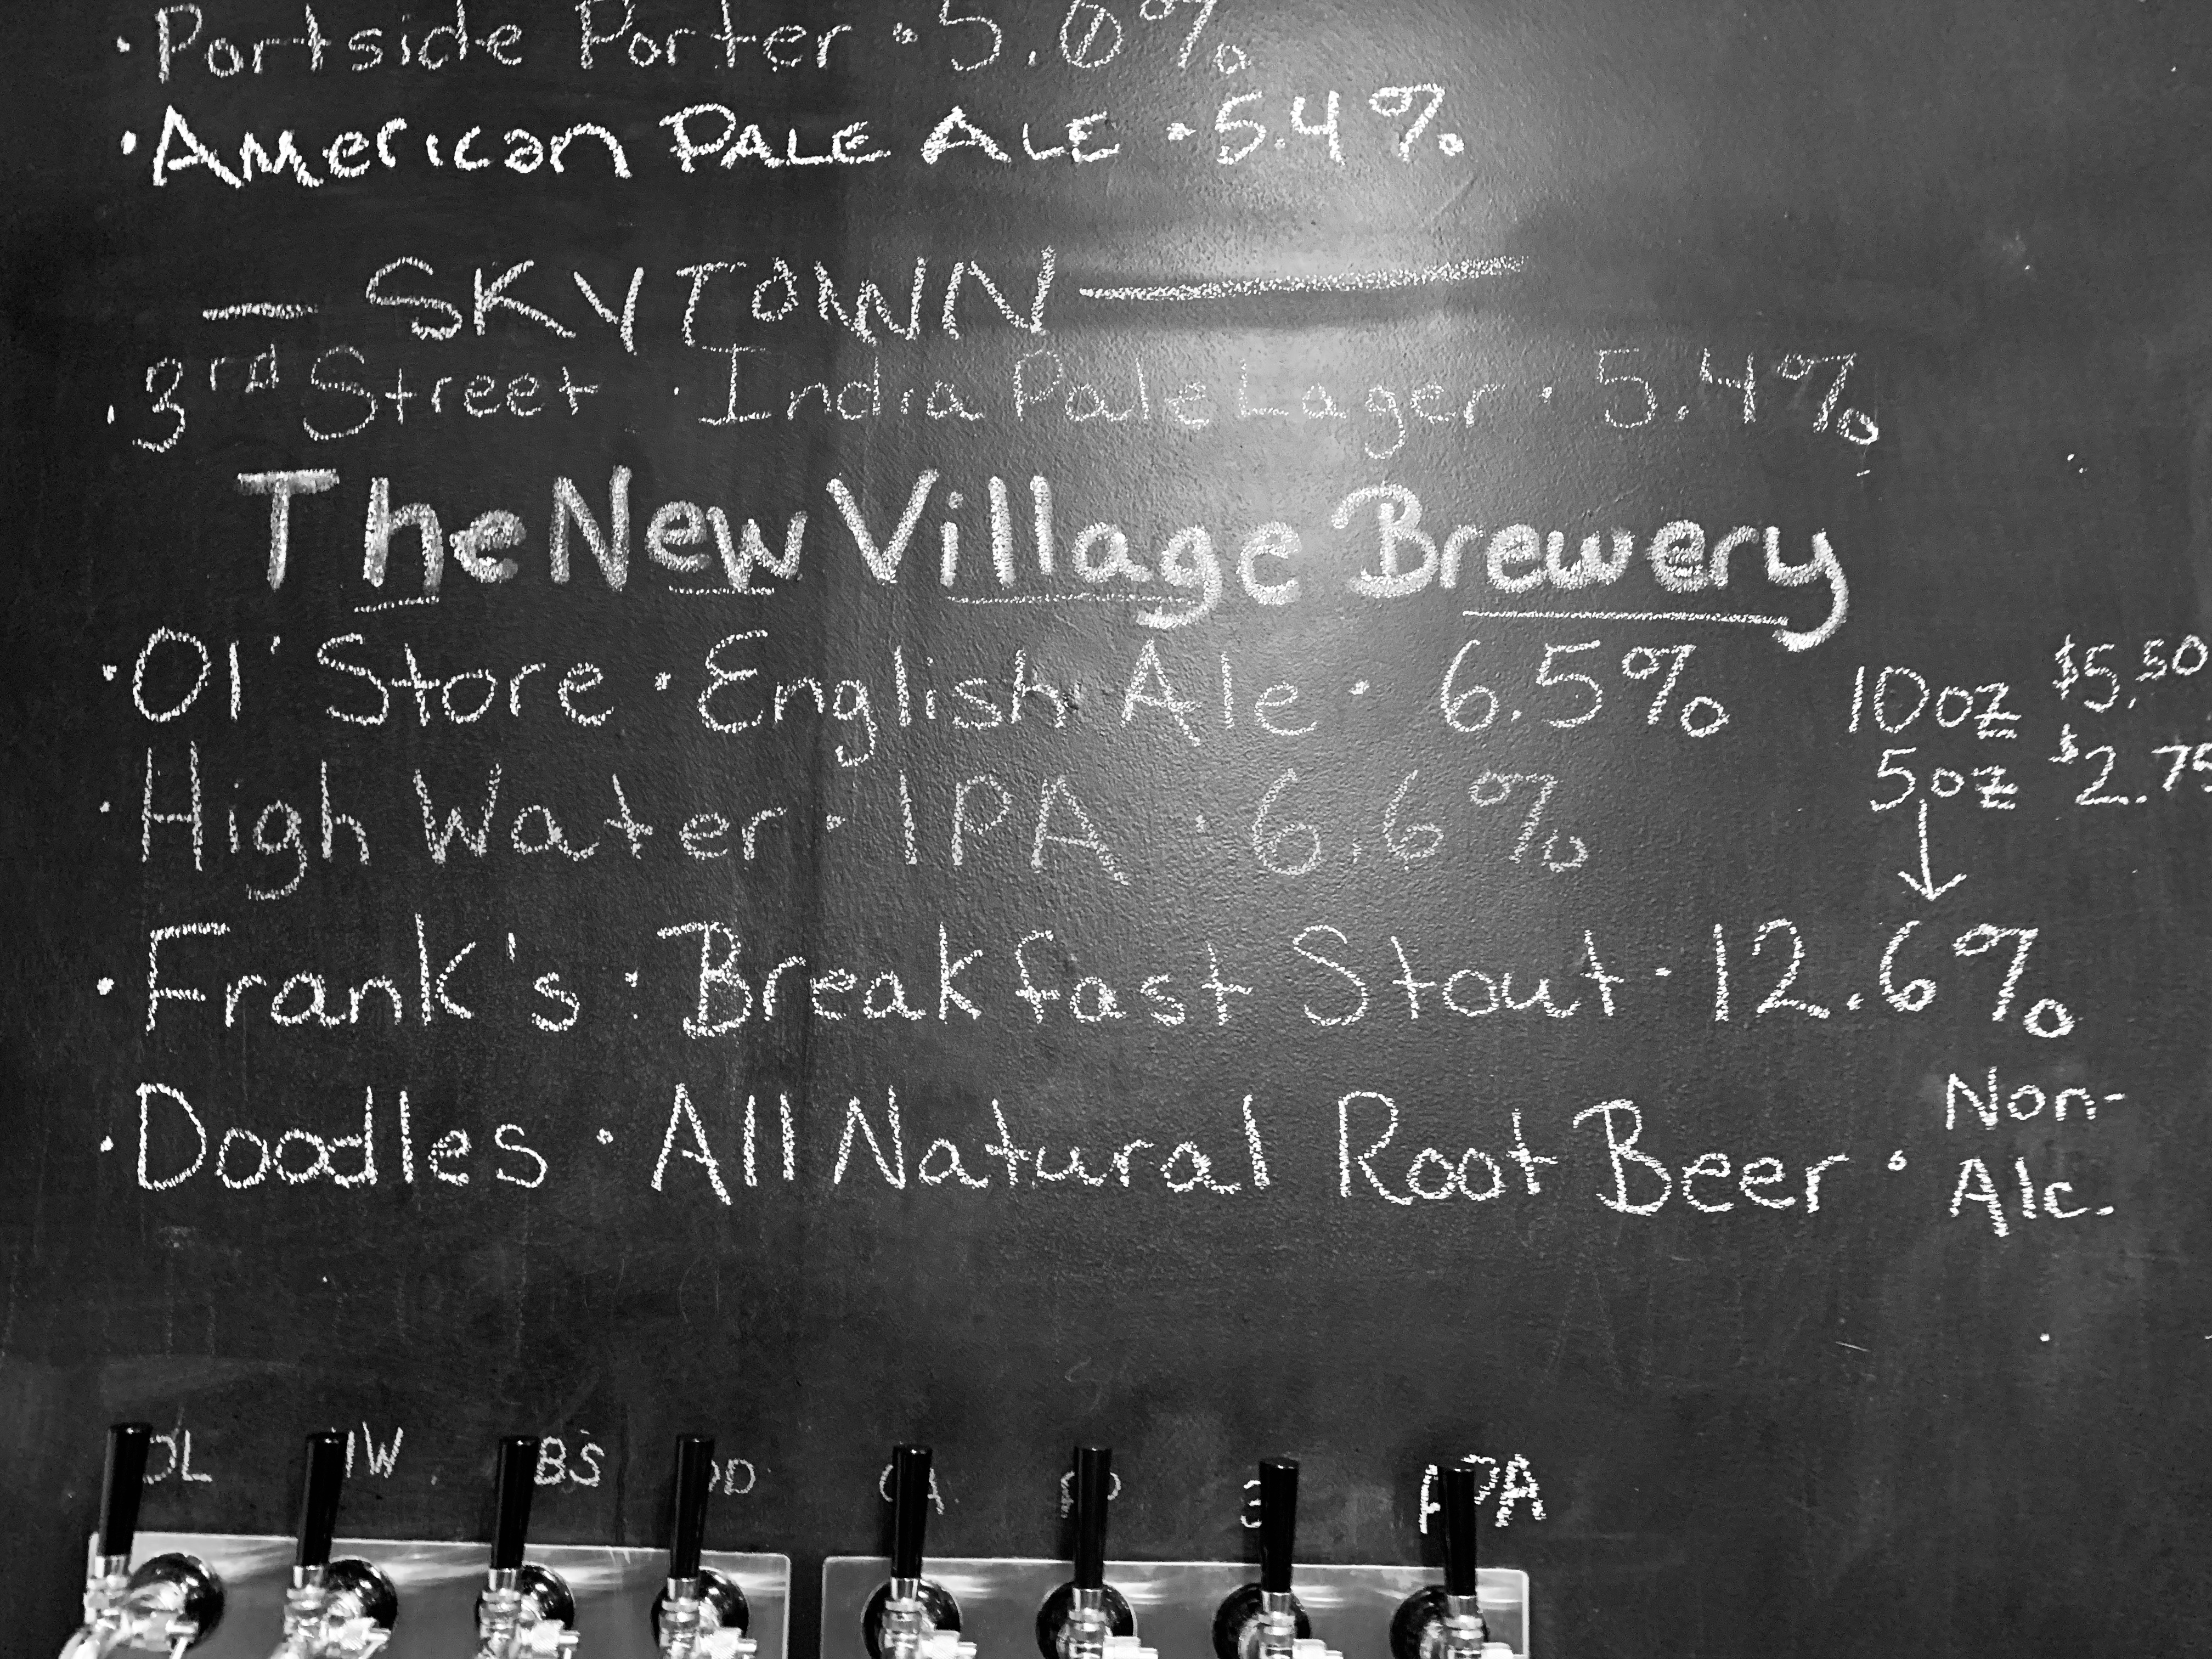 • Portside Porter • 5.0%
• American PALE ALE • 5.4%
— SKYTOWN —
• 3rd Street • India Pale Lager • 5.4%
The New Village Brewery
• Ol' Store • English Ale • 6.5%
10oz $5.50
5oz $2.75
• High Water • IPA • 6.6%
• Frank's • Breakfast Stout • 12.6%
• Doodles • All Natural Root Beer • Non-
Alc.
BS
APA